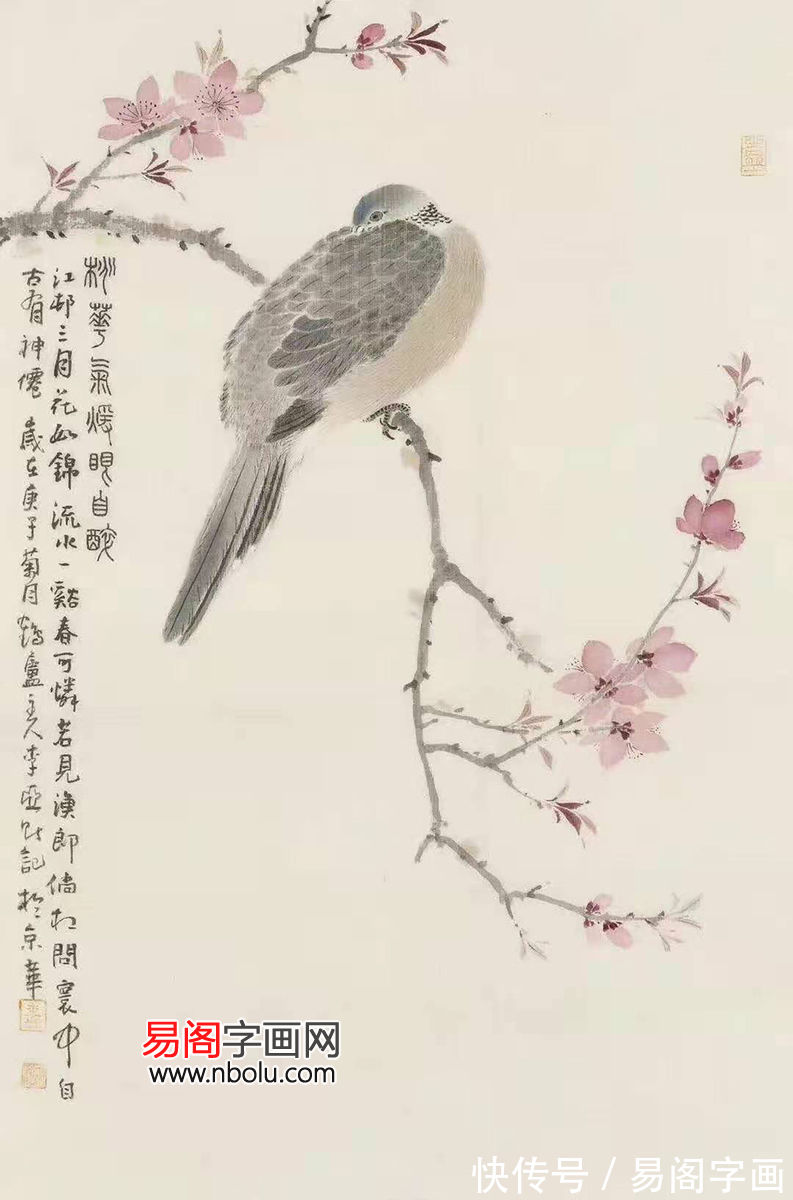 桃華气暖眼自醉
江邨三月花如錦流水一谿春可憐若見漁郎倘相問寰中自
古有神僊 歲在庚子菊月鶴廬主人李亞 記於京華
易阁字画网
www.nbolu.com
快传号 / 易阁字画